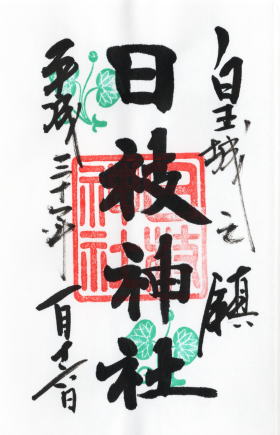 皇城之鎮
日枝神社
平成三十一年一月十六日
日枝
神社